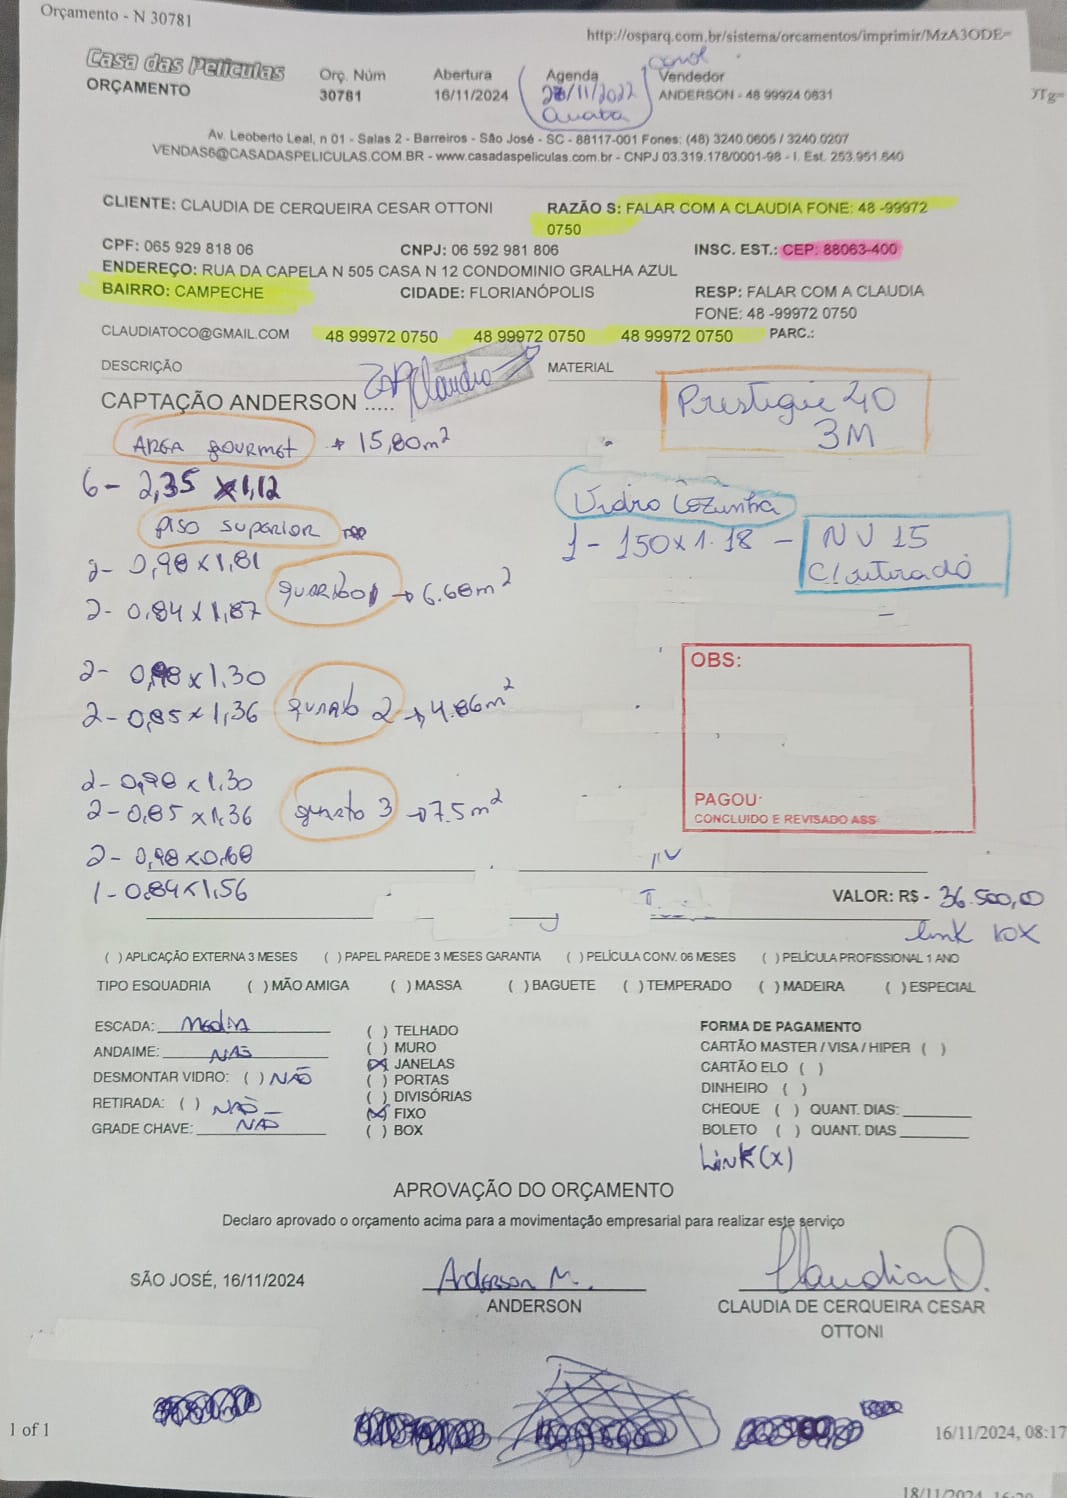 Orçamento - N 30781
http://osparq.com.br/sistema/orcamentos/imprimir/MzA3ODE=
Casa das Películas
ORÇAMENTO
Orç. Núm
30781
Abertura
16/11/2024
Agenda
/11/2022
Quarta
Vendedor
ANDERSON - 48 99924 0831
JTg=
Av. Leoberto Leal, n 01 - Salas 2 - Barreiros - São José - SC - 88117-001 Fones: (48) 3240 0605 / 3240 0207
VENDAS6@CASADASPELICULAS.COM.BR - www.casadaspeliculas.com.br - CNPJ 03.319.178/0001-98 - I. Est. 253.951.640
CLIENTE: CLAUDIA DE CERQUEIRA CESAR OTTONI
RAZÃO S: FALAR COM A CLAUDIA FONE: 48 -99972
0750
CPF: 065 929 818 06
CNPJ: 06 592 981 806
INSC. EST.: CEP: 88063-400
ENDEREÇO: RUA DA CAPELA N 505 CASA N 12 CONDOMINIO GRALHA AZUL
BAIRRO: CAMPECHE
CIDADE: FLORIANÓPOLIS
RESP: FALAR COM A CLAUDIA
FONE: 48 -99972 0750
CLAUDIATOCO@GMAIL.COM
48 99972 0750
48 99972 0750
48 99972 0750
PARC.:
DESCRIÇÃO
MATERIAL
CAPTAÇÃO ANDERSON .....
Claudio
Prestigie 40
3M
AREA gourmet
15,80m²
6 - 2,35 x 1,12
Vidro Cozinha
1 - 150 x 1.18 - NV 15
C/ outorado
PISO SUPERIOR
2- 0,98 x 1,81
2- 0,84 x 1,87
quarto 1 → 6.68m²
2- 0,98 x 1,30
2- 0,85 x 1,36
quarto 2 → 4.86m²
2- 0,98 x 1,30
2- 0,85 x 1,36
quarto 3 → 7.5m²
2- 0,98 x 0,68
1- 0.84 x 1,56
OBS:
PAGOU:
CONCLUIDO E REVISADO ASS
VALOR: R$ - 36.500,00
link 10X
( ) APLICAÇÃO EXTERNA 3 MESES ( ) PAPEL PAREDE 3 MESES GARANTIA ( ) PELÍCULA CONV. 06 MESES ( ) PELÍCULA PROFISSIONAL 1 ANO
TIPO ESQUADRIA ( ) MÃO AMIGA ( ) MASSA ( ) BAGUETE ( ) TEMPERADO ( ) MADEIRA ( ) ESPECIAL
ESCADA: Media
ANDAIME: NÃO
DESMONTAR VIDRO: ( ) NÃO
RETIRADA: ( ) NÃO
GRADE CHAVE: NÃO
( ) TELHADO
( ) MURO
(X) JANELAS
( ) PORTAS
( ) DIVISÓRIAS
(X) FIXO
( ) BOX
FORMA DE PAGAMENTO
CARTÃO MASTER / VISA / HIPER ( )
CARTÃO ELO ( )
DINHEIRO ( )
CHEQUE ( ) QUANT. DIAS:
BOLETO ( ) QUANT. DIAS
LINK (X)
APROVAÇÃO DO ORÇAMENTO
Declaro aprovado o orçamento acima para a movimentação empresarial para realizar este serviço
SÃO JOSÉ, 16/11/2024
Anderson M.
ANDERSON
Claudia O.
CLAUDIA DE CERQUEIRA CESAR
OTTONI
1 of 1
16/11/2024, 08:17
18/11/2024